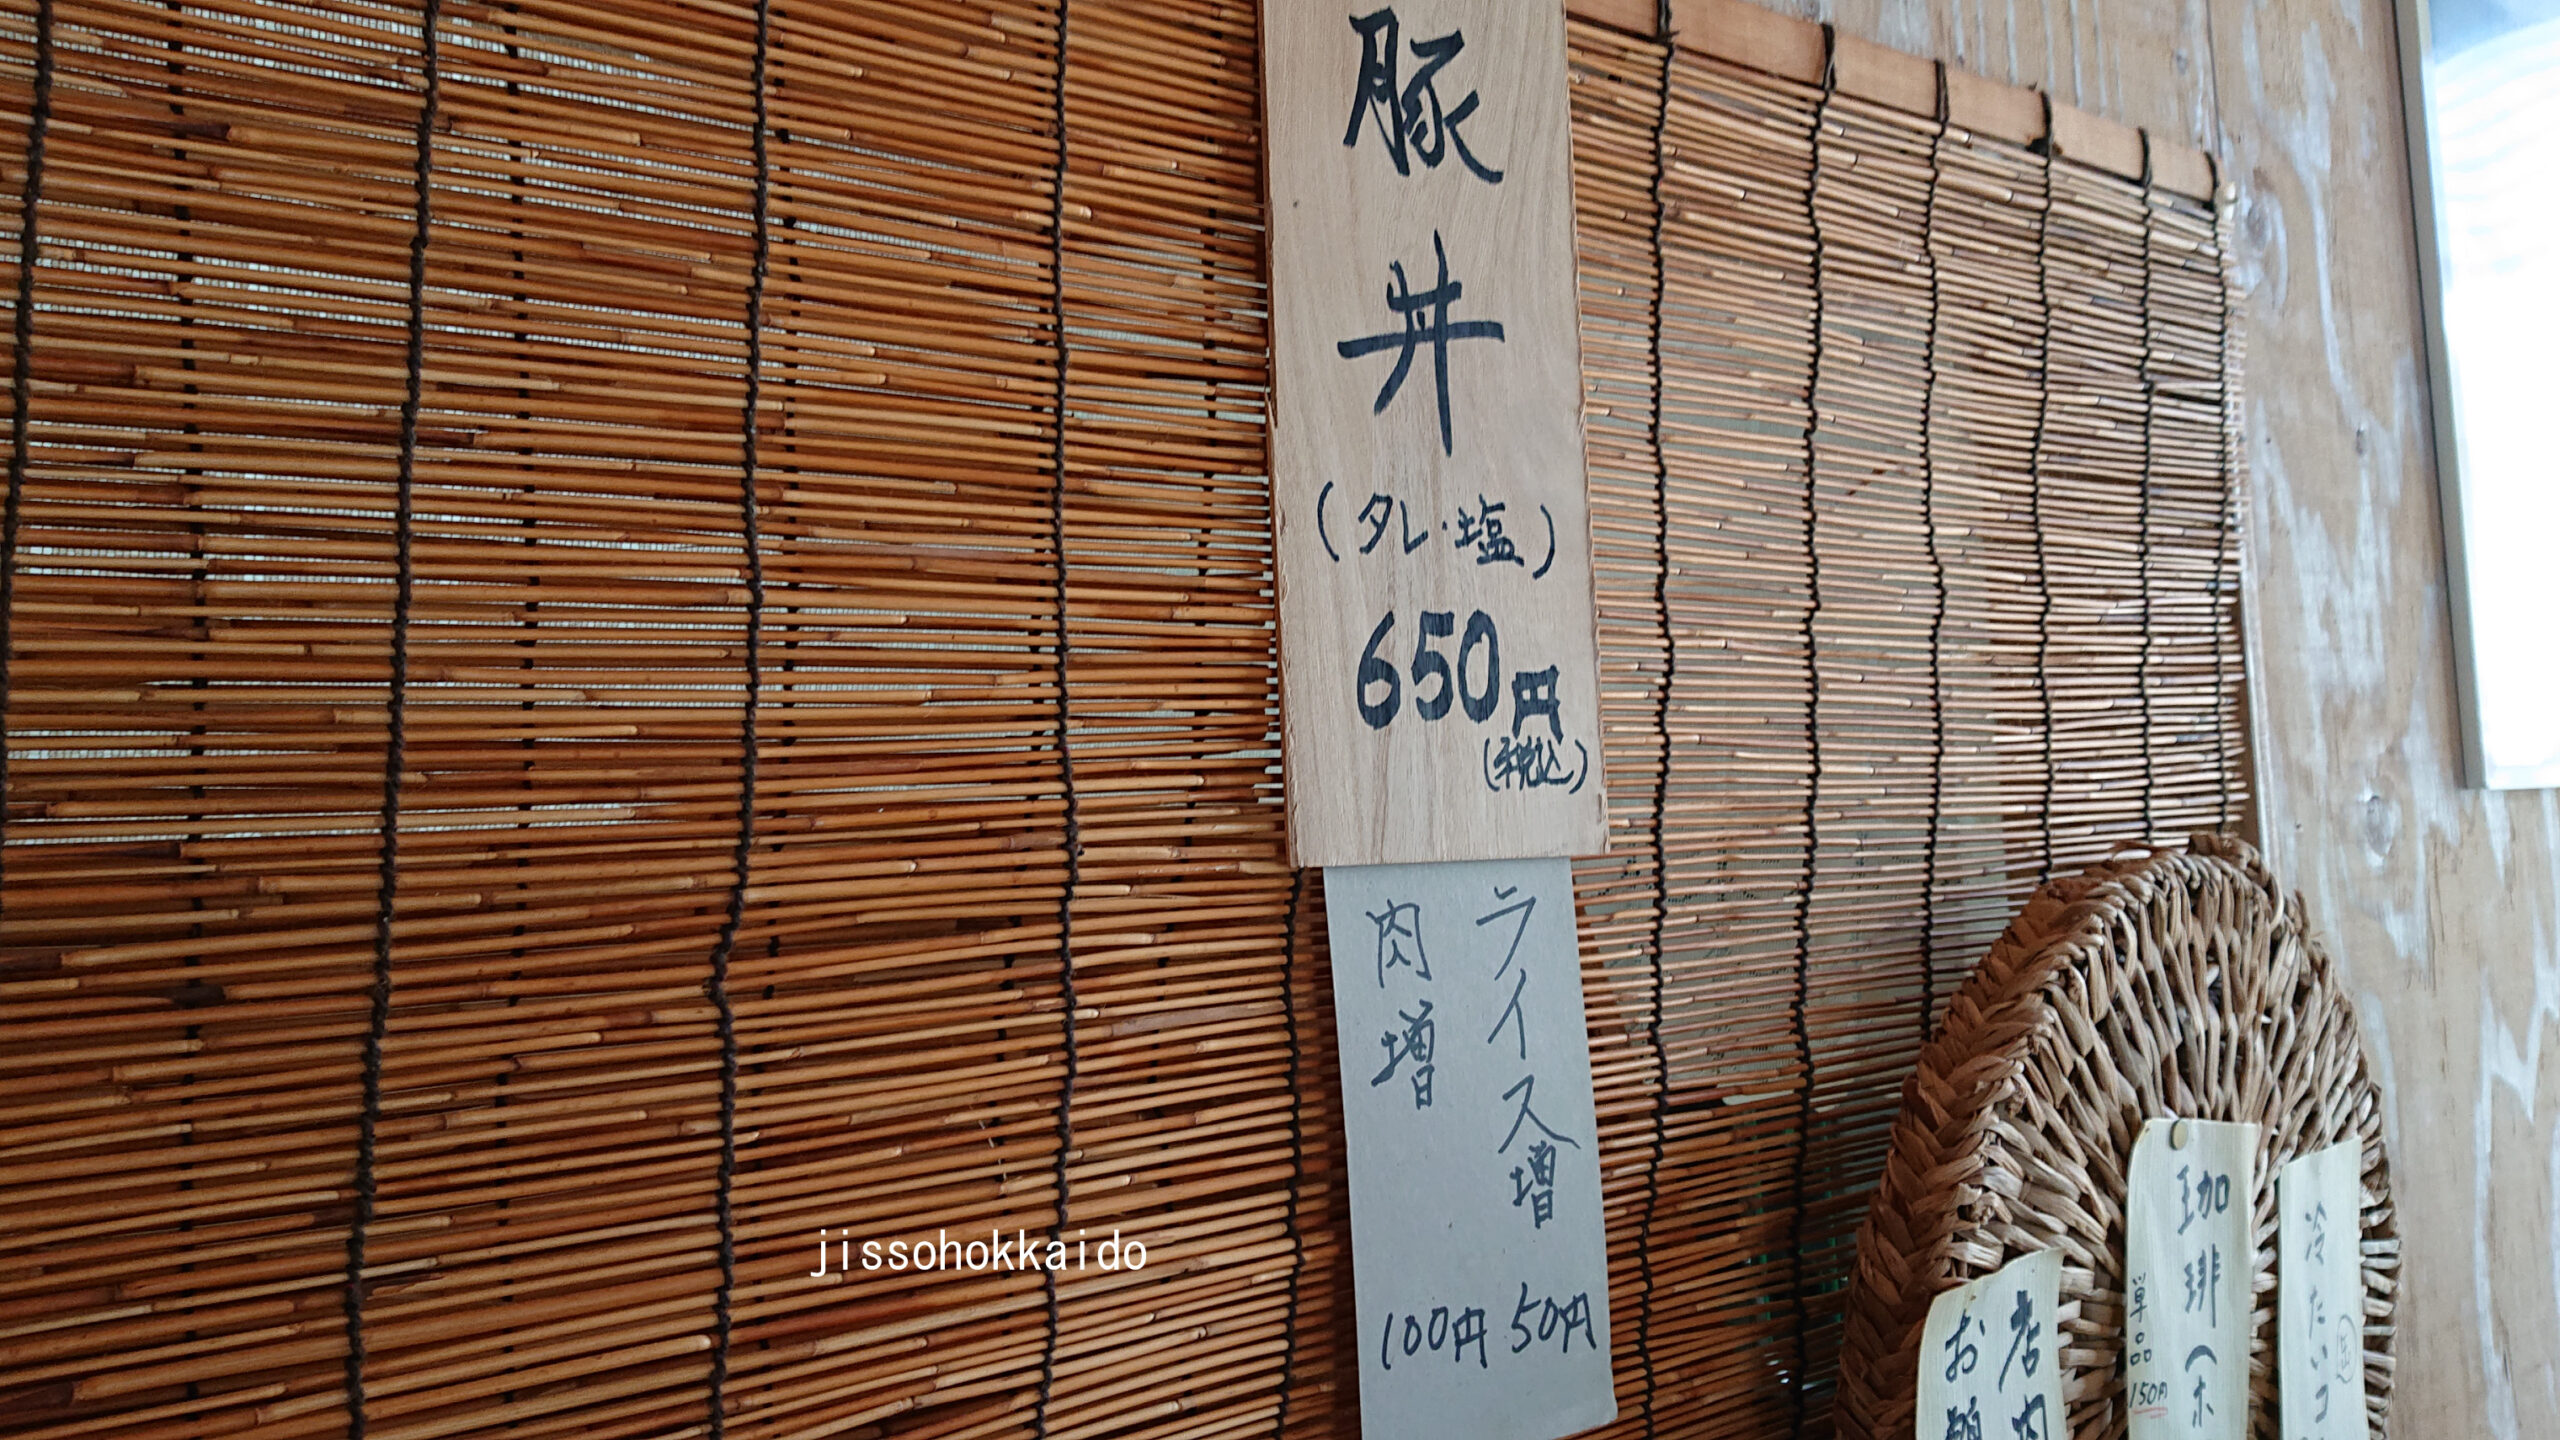 豚丼
(タレ・塩)
650円
(税込)
ライス増 50円
肉増 100円
jissohokkaido
冷たいコ
珈琲(ホ
単品
150円
店内
お願